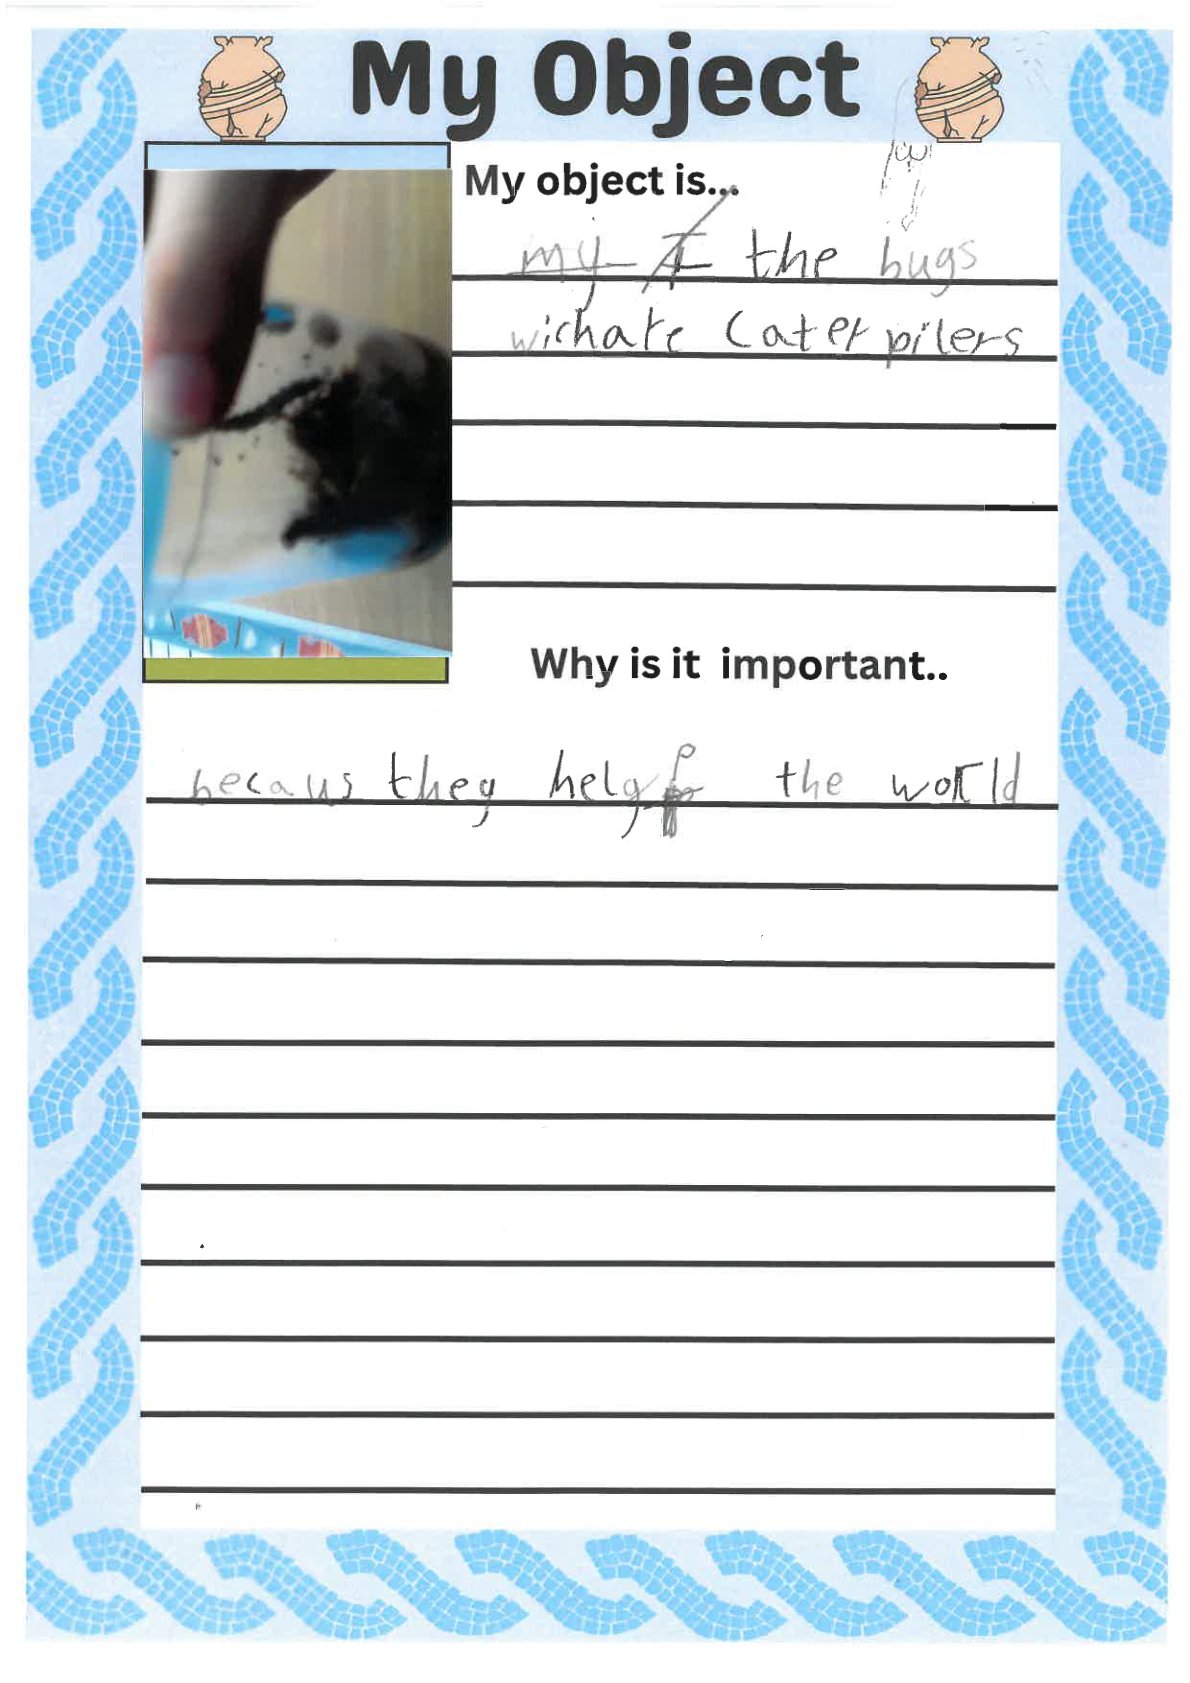 My Object
My object is...
my I the bugs
wichare Caterpilers
Why is it important..
becaus they help the world